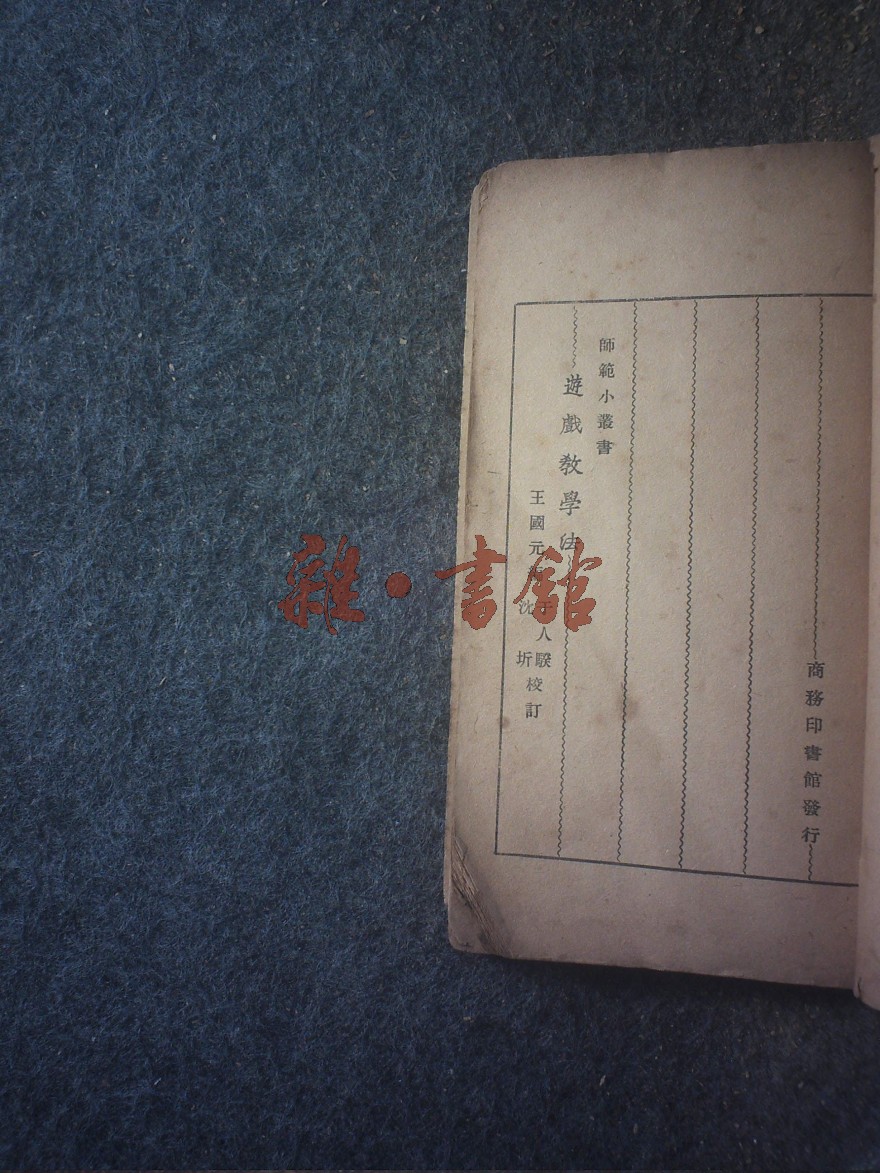 師範小叢書
遊戲教學法
王國元
沈
人騤
圻
校訂
商務印書館發行
雜·書館